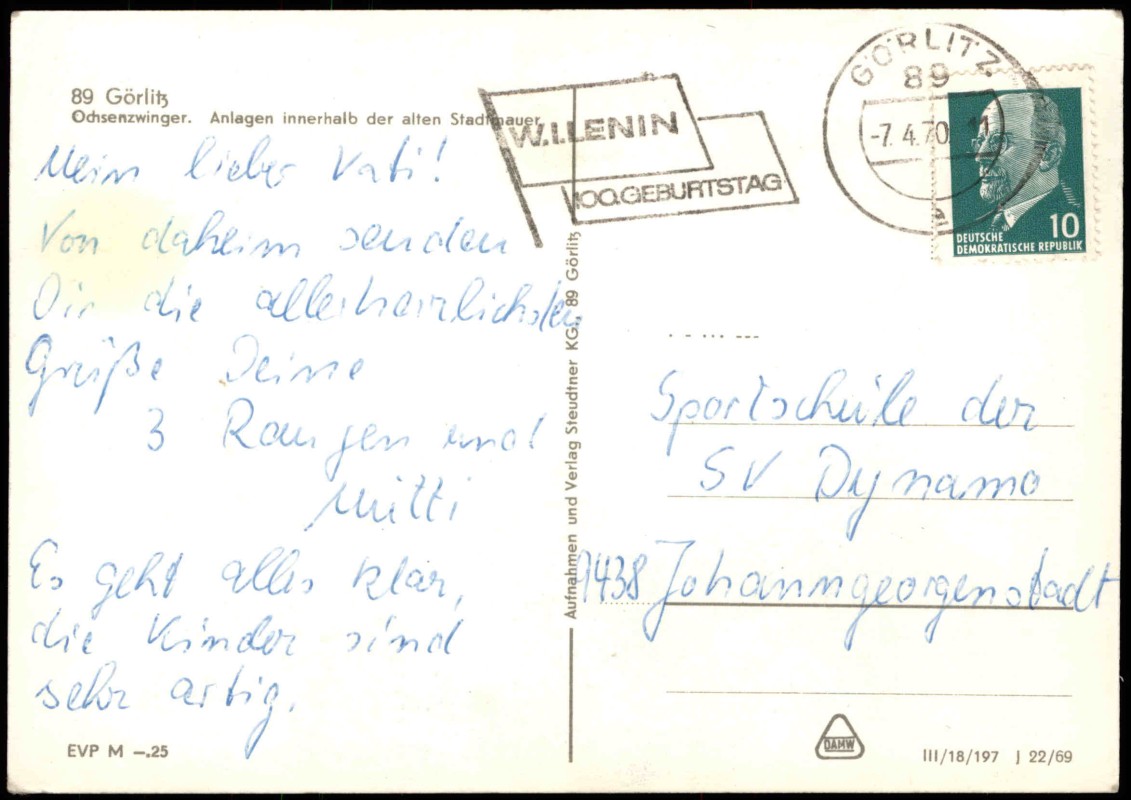 89 Görlitz
Ochsenzwinger. Anlagen innerhalb der alten Stadtmauer
Mein lieber Vati!
Von daheim senden
Dir die allerherzlichsten
Grüße Deine
3 Rangen und
Mutti
Es geht alles klar,
die Kinder sind
sehr artig.
EVP M —.25
W.I.LENIN
100.GEBURTSTAG
GÖRLITZ
89
-7.4.70. 11
a
10
DEUTSCHE
DEMOKRATISCHE REPUBLIK
Aufnahmen und Verlag Steudtner KG, 89 Görlitz
Sportschule der
SV Dynamo
9438 Johanngeorgenstadt
DAMW
III/18/197 J 22/69